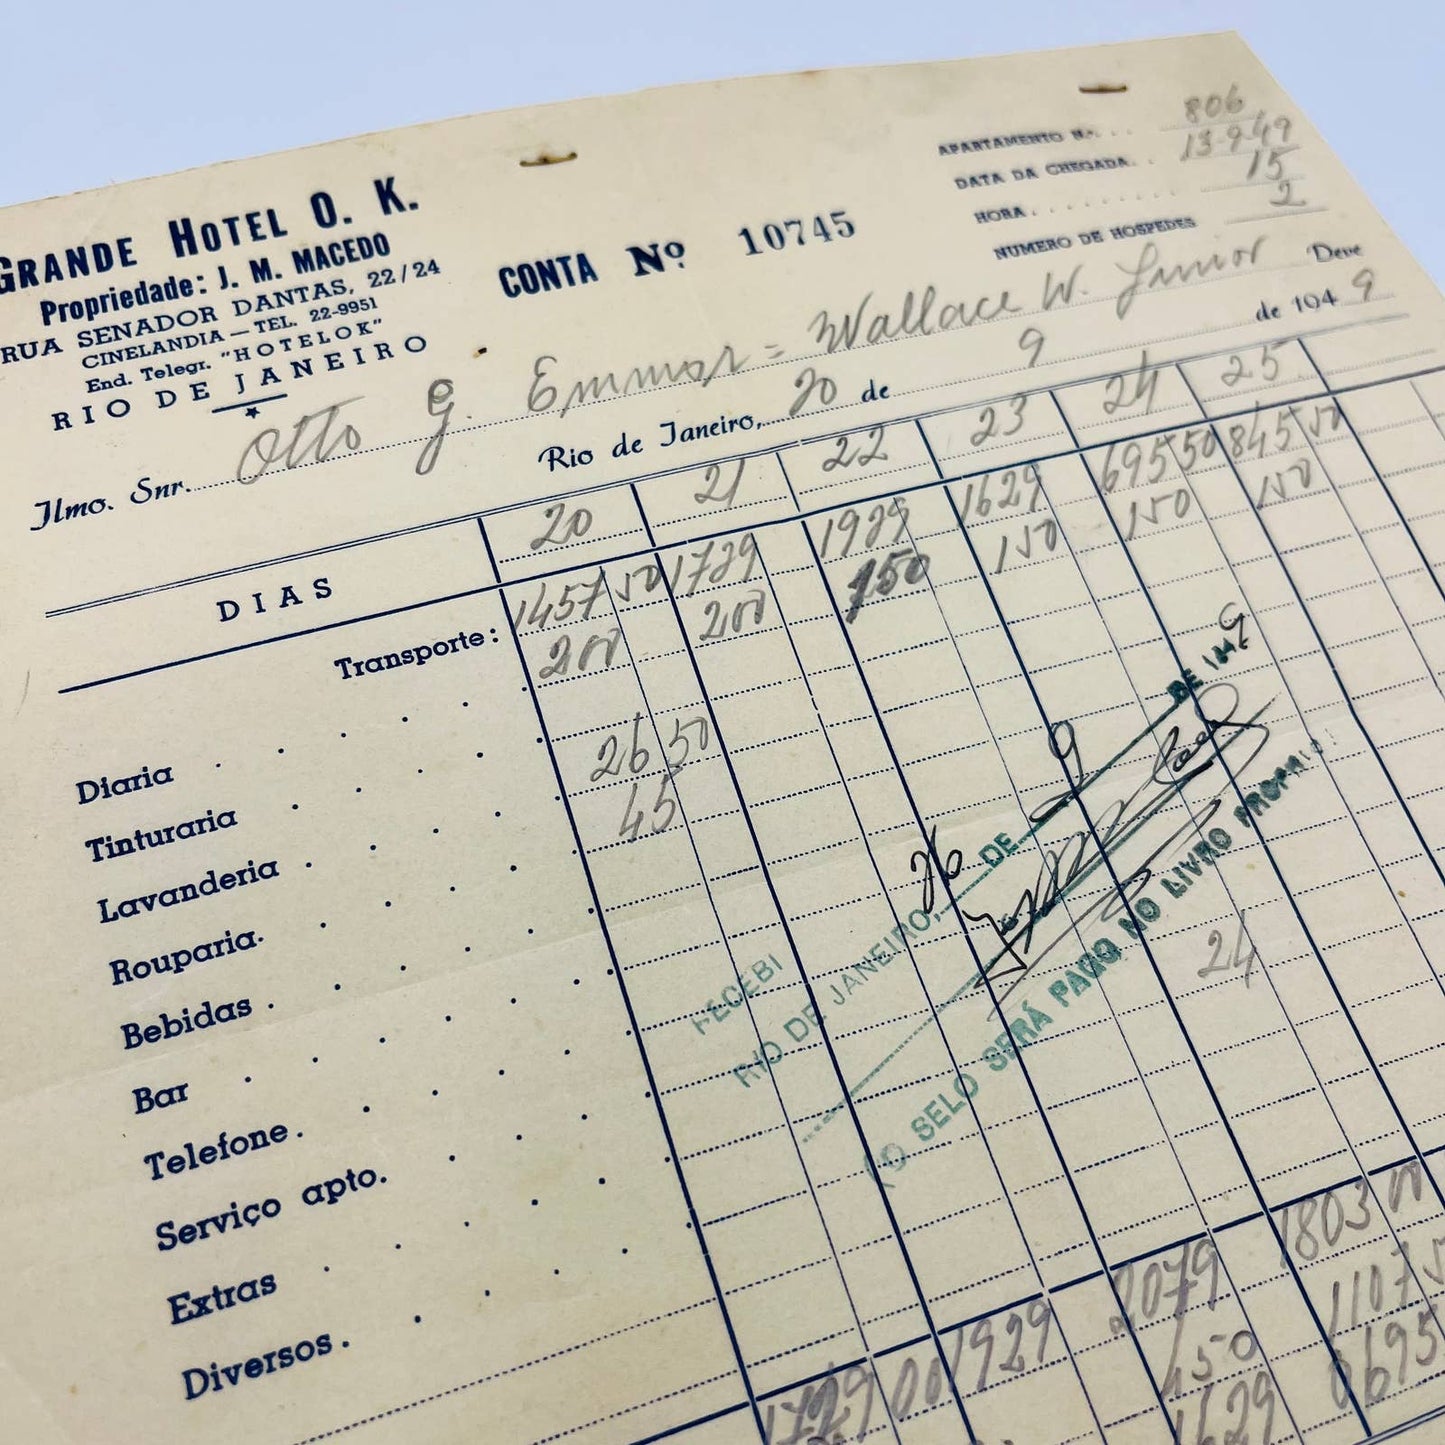 GRANDE HOTEL O. K.
Propriedade: J. M. MACEDO
RUA SENADOR DANTAS, 22/24
CINELANDIA — TEL. 22-9951
End. Telegr. "HOTELOK"
RIO DE JANEIRO
CONTA Nº 10745
APARTAMENTO N.... 806
DATA DA CHEGADA.. 13-9-49
HORA......... 15
NUMERO DE HOSPEDES 2
Ilmo. Snr. Otto G. Emmor = Wallace W. Junior Deve
Rio de Janeiro, 20 de 9 de 194 9
DIAS 20 21 22 23 24 25
Transporte: 1457 50 1729 1929 1629 695 50 845 50
Diaria 200 200 150 150 150 150
Tinturaria
Lavanderia 26 50
Rouparia. 45
Bebidas
Bar
Telefone.
Serviço apto. 24
Extras
Diversos.
1729 00 1929 2079 1803 00
450 1107 5
1629 0695
RECEBI
RIO DE JANEIRO, 26 DE 9 DE 1949
O SELO SERÁ PAGO NO LIVRO PROPRIO